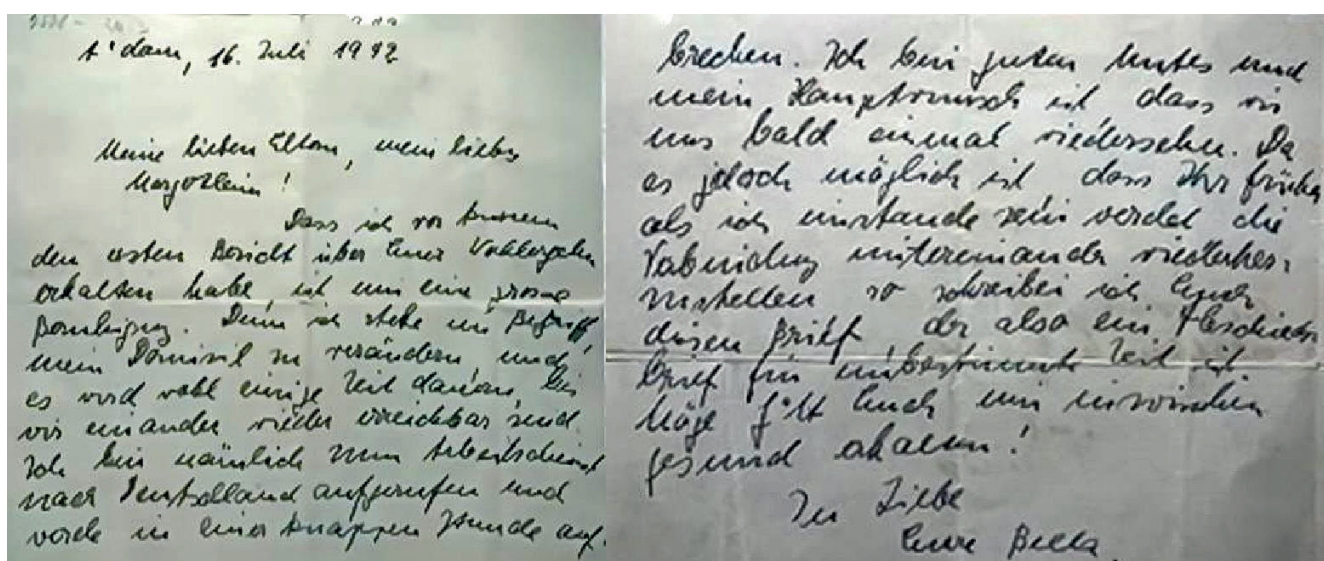 A'dam, 16. Juli 1942
Meine lieben Eltern, mein liebes
Margotlein!
Dass ich vor kurzem
den ersten Bericht über Euer Wohlergehen
erhalten habe, ist mir eine grosse
Beruhigung. Denn ich stehe im Begriff,
mein Domizil zu verändern und
es wird wohl einige Zeit dauern, bis
wir einander wieder erreichbar sind.
Ich bin nämlich zum Arbeitsdienst
nach Deutschland aufgerufen und
werde in einer knappen Stunde auf-
brechen. Ich bin guten Mutes und
mein Hauptwunsch ist dass wir
uns bald einmal wiedersehen. Da
es jedoch möglich ist, dass Ihr früher
als ich imstande sein werdet die
Verbindung miteinander wiederher-
zustellen so schreibe ich Euch
diesen Brief, der also ein Abschieds-
brief für unbestimmte Zeit ist
Möge Gott Euch mir inzwischen
gesund erhalten!
In Liebe
Eure Bella